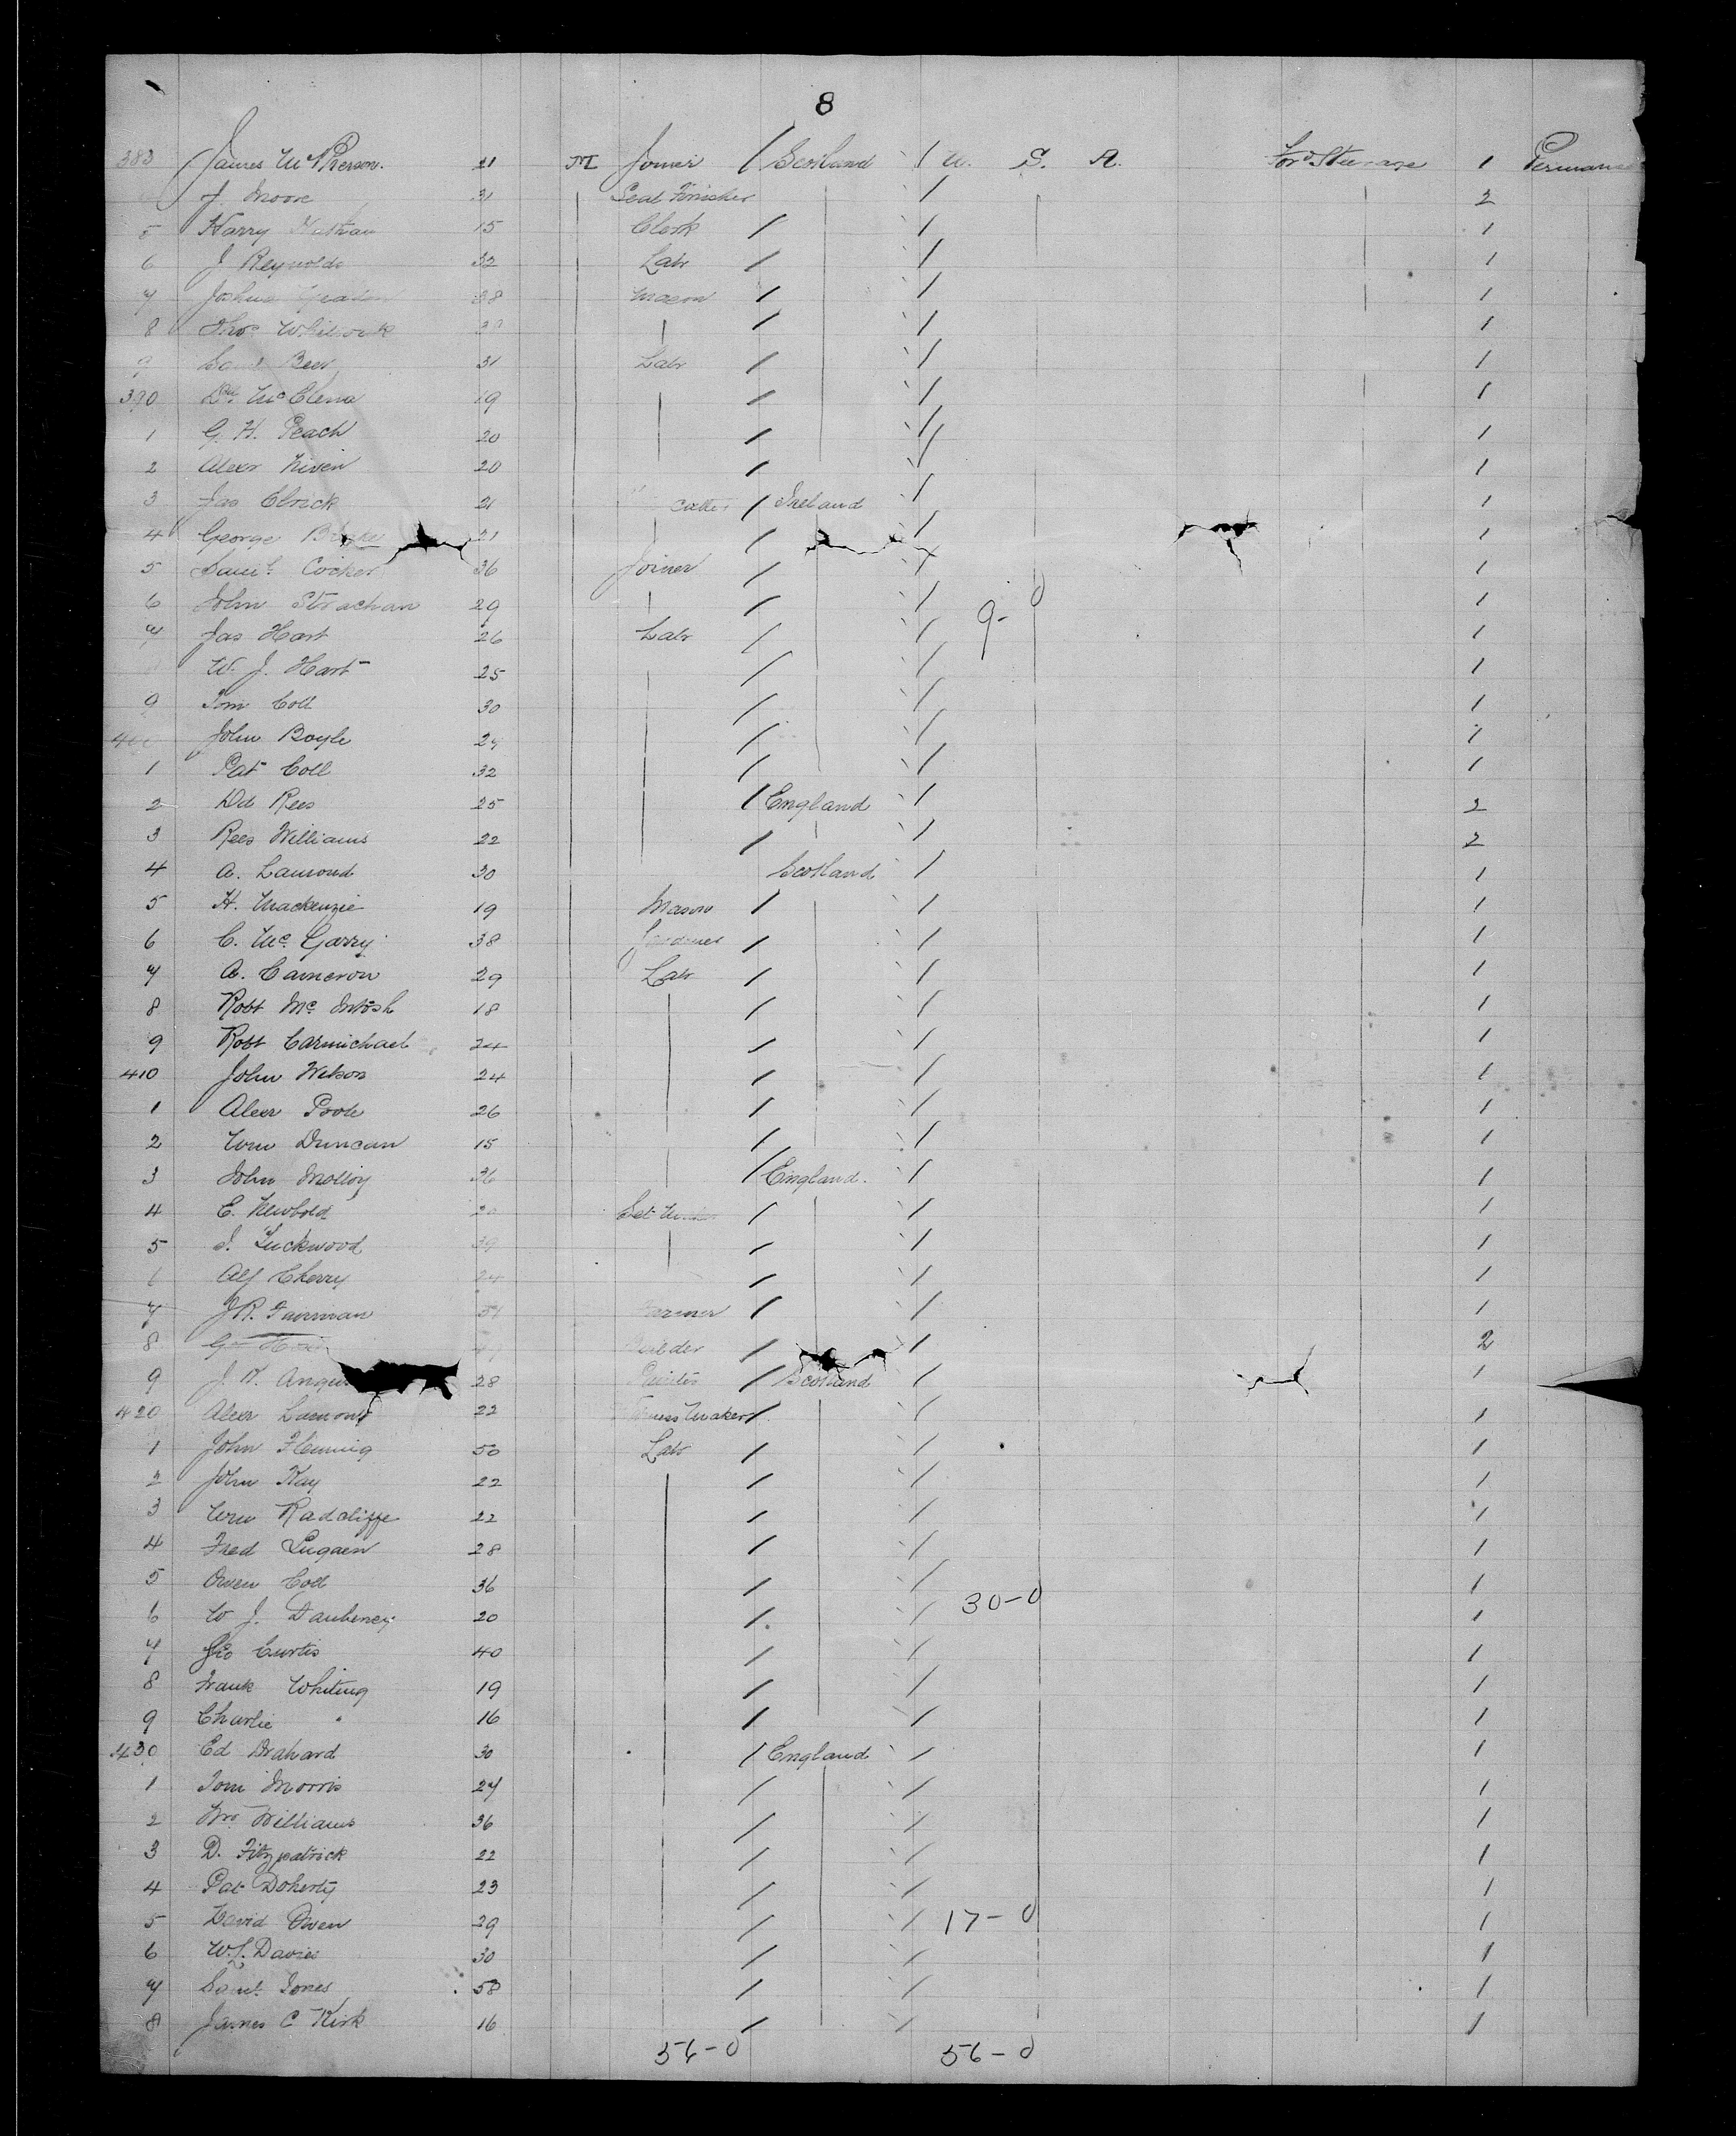 8
383 James McPherson. 21 M Joiner / Scotland / U. S. A. For'd Steerage 1 Permanent
J. Moore 31 Seal Finisher / 2
5 Harry Nathan 15 Clerk / / 1
6 J Reynolds 32 Labr / / 1
7 Joshua 38 Mason / / 1
8 Thos Whitwick / / 1
9 Saml Beer 31 Labr / / 1
390 Dd. McClena 19 / / 1
1 G. H. Peach 20 / / 1
2 Alexr Niven 20 / / 1
3 Jas Elrick 21 cutter / Ireland / 1
4 George 21 / / 1
5 Saml. Cocker 36 Joiner / / 1
6 John Strachan 29 / / 9-0 1
7 Jas Hart 26 Labr / / 1
W. J. Hart 25 / / 1
9 Tom Coll 30 / / 1
400 John Boyle 24 / / 1
1 Pat Coll 32 / / 1
2 Dd Rees 25 / England / 2
3 Rees Williams 22 / / 2
4 A. Lamond 30 Scotland / 1
5 H. Mackenzie 19 Mason / / 1
6 C. Mc. Garry 38 Gardner / / 1
7 A. Cameron 29 Labr / / 1
8 Robt Mc Intosh 18 / / 1
9 Robt Carmichael 24 / / 1
410 John Wilson 24 / / 1
1 Alexr Poole 26 / / 1
2 Wm Duncan 15 / / 1
3 John Molloy 36 / England. / 1
4 E. Newbold 20 Set / / 1
5 Luckwood 39 / / 1
6 Alf Cherry 24 / / 1
7 J.R. Fairman 51 Farmer / / 1
8 Geo Builder / / 2
9 J. Angus 28 Painter / Scotland / 1
420 Alexr Lamont 22 Maker / / 1
1 John Fleming 50 Labr / / 1
2 John Kay 22 / / 1
3 Wm Radcliffe 22 / / 1
4 Fred 28 / / 1
5 Owen Coll 36 / / 30-0 1
6 W J. Daubeney 20 / / 1
7 Geo Curtis 40 / / 1
8 Frank Whiting 19 / / 1
9 Charlie " 16 / / 1
430 Ed Drahard 30 / England / 1
1 Tom Morris 27 / / 1
2 Wm Williams 36 / / 1
3 D. Fitzpatrick 22 / / 1
4 Pat Doherty 23 / / 1
5 David Owen 29 / / 17-0 1
6 W.L. Davies 30 / / 1
7 Saml. Jones 58 / / 1
8 James C Kirk 16 / / 1
56-0 56-0